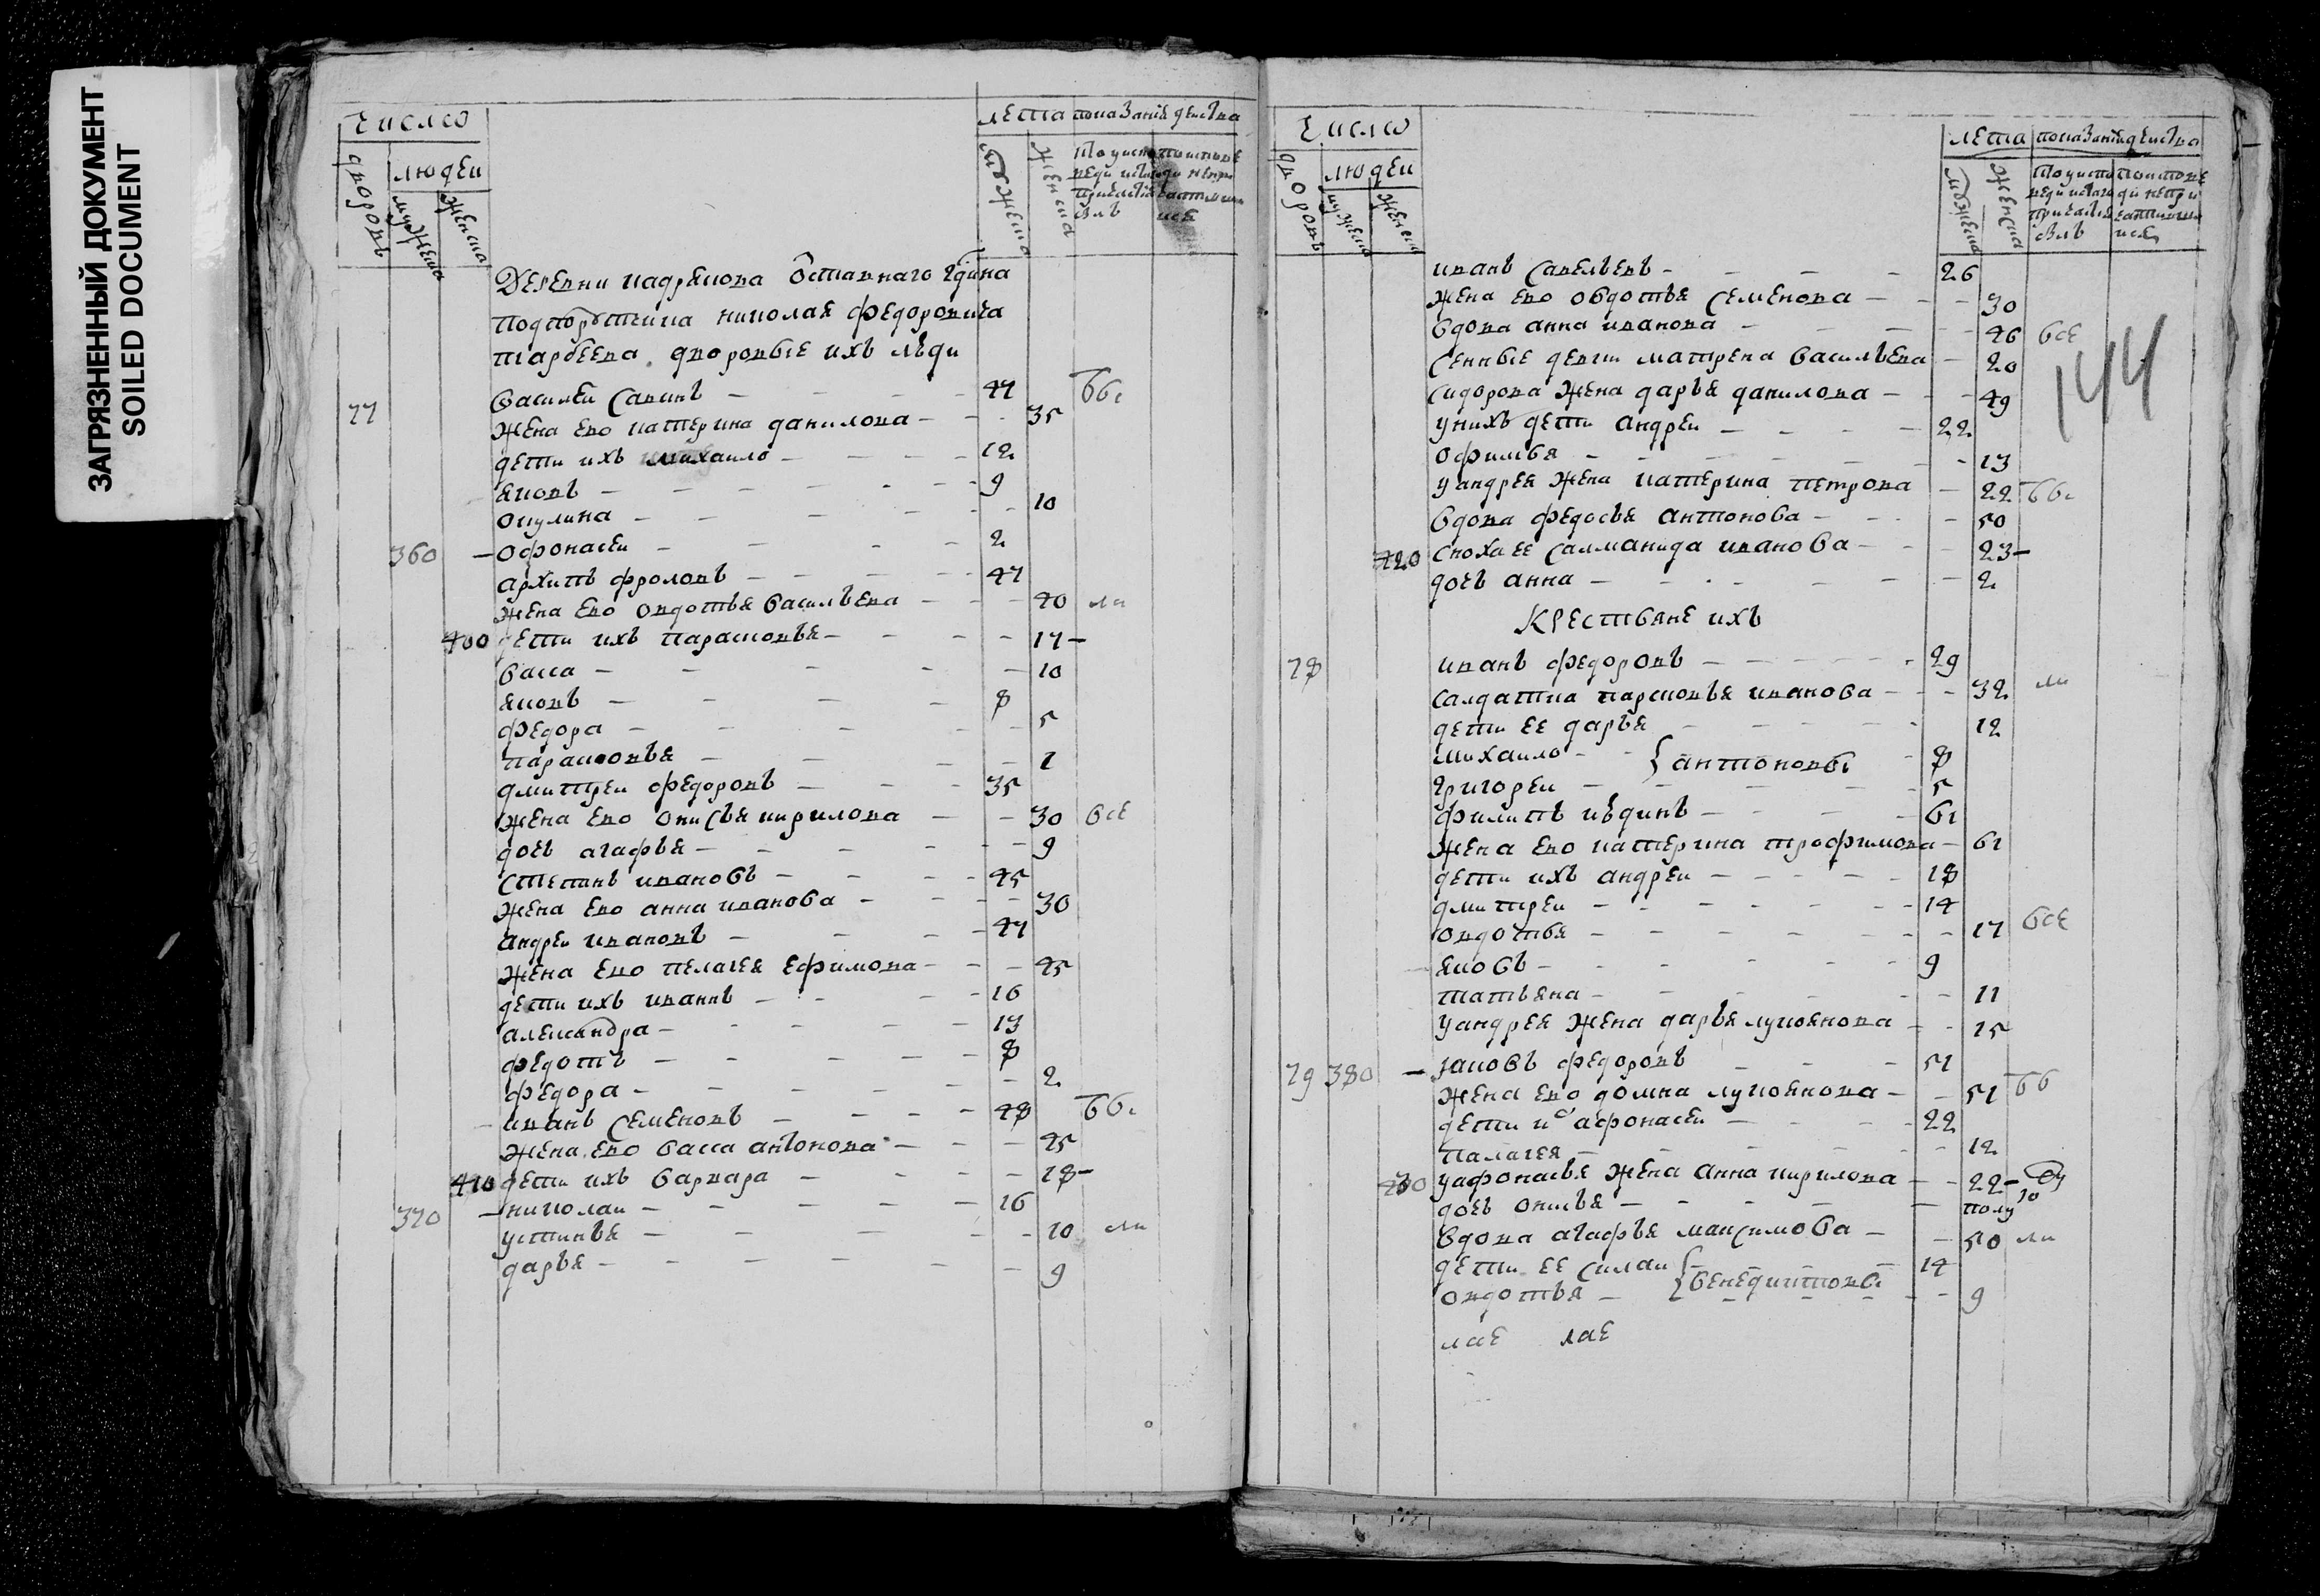 ЗАГРЯЗНЕННЫЙ ДОКУМЕНТ
SOILED DOCUMENT
число
дворовъ
людеи
мужеска
женска
лета показание действа
мужеска
женска
деревни кадрекова отставнаго гдина
подпорутчика николая федоровича
тарбеева дворовые ихъ люди
77 василеи савинъ 47 ббс
жена ево катерина данилова 35
дети ихъ михаило 12
яковъ 9
окулина 10
360 офонасеи 2
архипъ фроловъ 47
жена ево овдотья васильева 40 ли
400 дети ихъ парасковья 17
васса 10
яковъ 8
федора 5
парасковья 1
дмитреи федоровъ 35
жена ево онисья кирилова 30 все
дочь агафья 9
степанъ ивановъ 45
жена ево анна иванова 30
андреи ивановъ 47
жена ево пелагея ефимова 45
дети ихъ иванъ 16
александра 13
федотъ 8
федора 2
иванъ семеновъ 48 ббс
жена ево васса антонова 45
410 дети ихъ варвара 18
370 николаи 16
устинья 10 ли
дарья 9
число
дворовъ
людеи
мужеска
женска
лета показание действа
мужеска
женска
144
иванъ савельевъ 26
жена ево овдотья семенова 30
вдова анна иванова 46 все
сенные девки матрена васильева 20
сидорова жена дарья данилова 49
у нихъ дети андреи 22
офимья 13
у андрея жена катерина петрова 22 ббс
вдова федосья антонова 50
420 сноха ее салманида иванова 23
дочь анна 2
крестьяне ихъ
78 иванъ федоровъ 29
салдатка парсковья иванова 32 ли
дети ее дарья 12
михаило } антоновы 8
григореи 5
филипъ 61
жена ево катерина трофимова 61
дети ихъ андреи 18
дмитреи 14
овдотья 17 все
яковъ 9
татьяна 11
у андрея жена дарья лукоянова 25
79 380 яковъ федоровъ 51
жена ево домна лукоянова 51 бб
дети их афонасеи 22
палагея 12
430 у афонасья жена анна кирилова 22
дочь онисья полу
вдова агафья максимова 50 ли
дети ее силаи } венедиктовы 14
овдотья 9